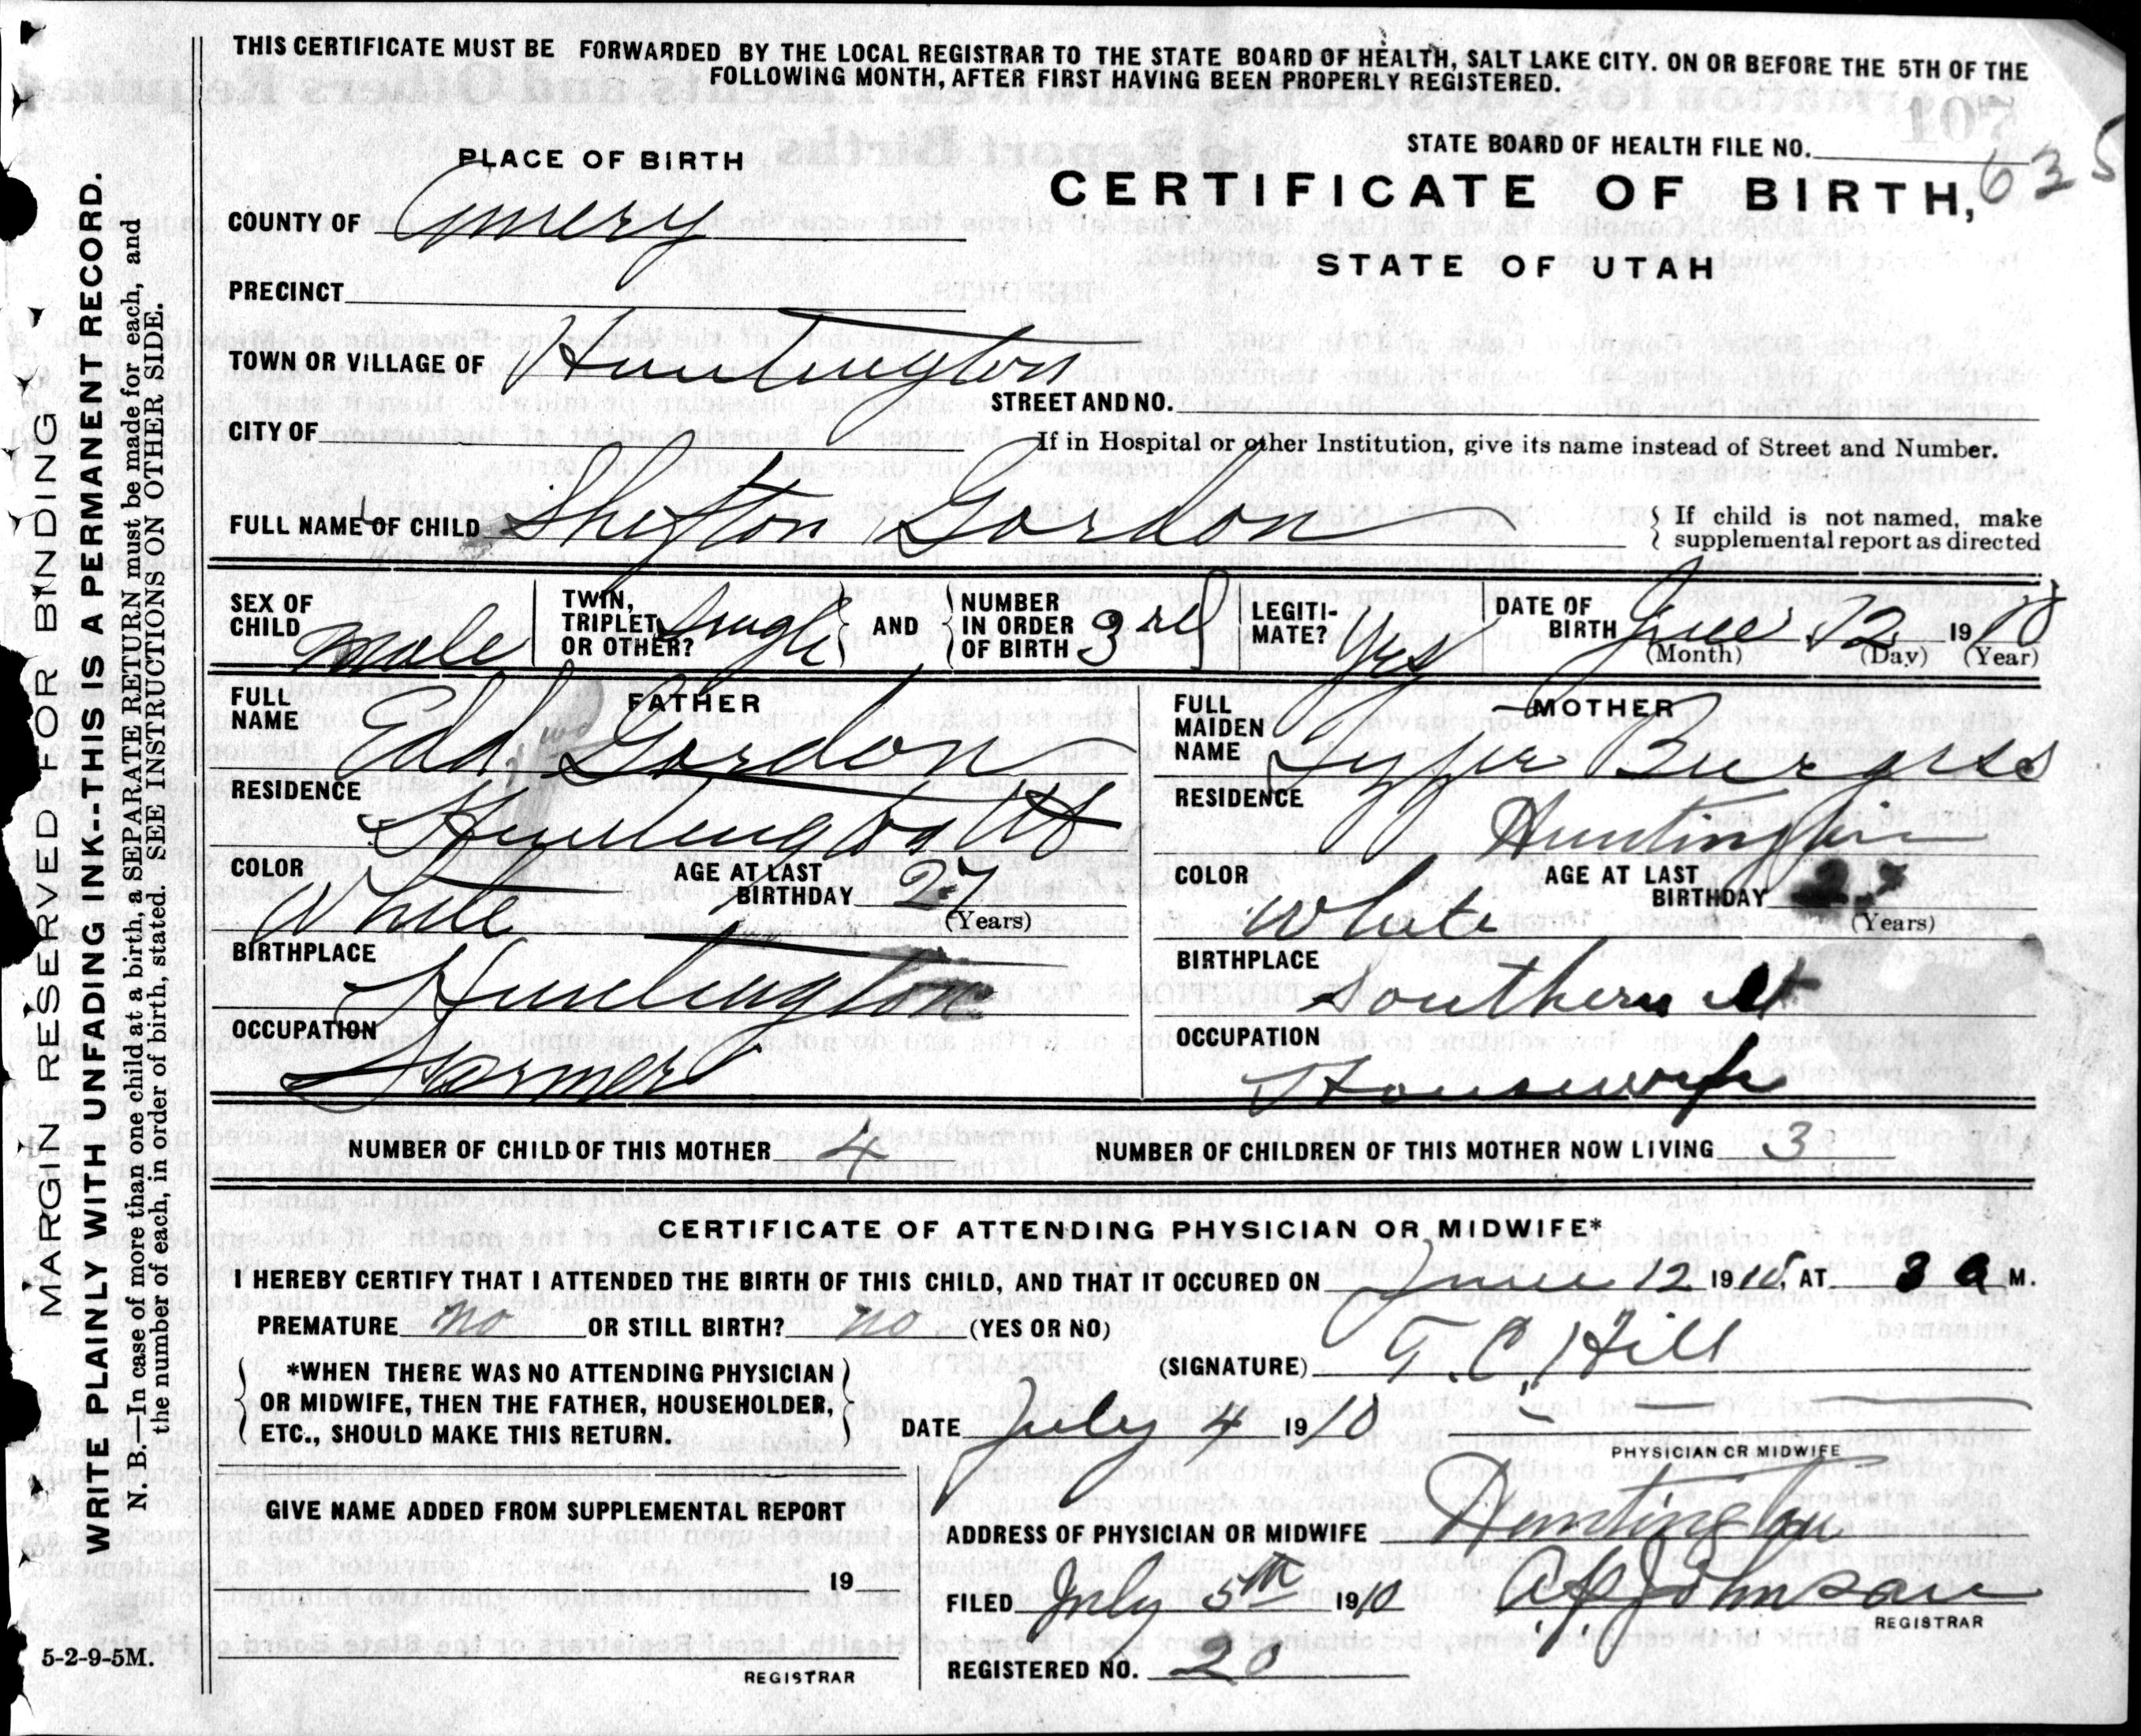 THIS CERTIFICATE MUST BE FORWARDED BY THE LOCAL REGISTRAR TO THE STATE BOARD OF HEALTH, SALT LAKE CITY. ON OR BEFORE THE 5TH OF THE
FOLLOWING MONTH, AFTER FIRST HAVING BEEN PROPERLY REGISTERED.
MARGIN RESERVED FOR BINDING
WRITE PLAINLY WITH UNFADING INK--THIS IS A PERMANENT RECORD.
N. B.—In case of more than one child at a birth, a SEPARATE RETURN must be made for each, and
the number of each, in order of birth, stated. SEE INSTRUCTIONS ON OTHER SIDE.
PLACE OF BIRTH
STATE BOARD OF HEALTH FILE NO. 635
CERTIFICATE OF BIRTH,
STATE OF UTAH
COUNTY OF Emery
PRECINCT
TOWN OR VILLAGE OF Huntington
STREET AND NO.
CITY OF
If in Hospital or other Institution, give its name instead of Street and Number.
FULL NAME OF CHILD Gordon
If child is not named, make
supplemental report as directed
SEX OF CHILD male
TWIN, TRIPLET, OR OTHER? Single
AND
NUMBER IN ORDER OF BIRTH 3rd
LEGITIMATE? Yes
DATE OF BIRTH June 12 1910
(Month) (Day) (Year)
FATHER
FULL NAME Edd Gordon
RESIDENCE Huntington Ut
COLOR White
AGE AT LAST BIRTHDAY 27
(Years)
BIRTHPLACE Huntington
OCCUPATION Farmer
MOTHER
FULL MAIDEN NAME Burgess
RESIDENCE Huntington
COLOR White
AGE AT LAST BIRTHDAY
(Years)
BIRTHPLACE Southern Ut
OCCUPATION Housewife
NUMBER OF CHILD OF THIS MOTHER 4
NUMBER OF CHILDREN OF THIS MOTHER NOW LIVING 3
CERTIFICATE OF ATTENDING PHYSICIAN OR MIDWIFE*
I HEREBY CERTIFY THAT I ATTENDED THE BIRTH OF THIS CHILD, AND THAT IT OCCURED ON June 12 1910, AT 3 A M.
PREMATURE no OR STILL BIRTH? no (YES OR NO)
*WHEN THERE WAS NO ATTENDING PHYSICIAN
OR MIDWIFE, THEN THE FATHER, HOUSEHOLDER,
ETC., SHOULD MAKE THIS RETURN.
(SIGNATURE) T. C. Hill
DATE July 4 1910
PHYSICIAN OR MIDWIFE
GIVE NAME ADDED FROM SUPPLEMENTAL REPORT
ADDRESS OF PHYSICIAN OR MIDWIFE Huntington
19
FILED July 5th 1910
Johnson
REGISTRAR
5-2-9-5M.
REGISTRAR
REGISTERED NO. 20